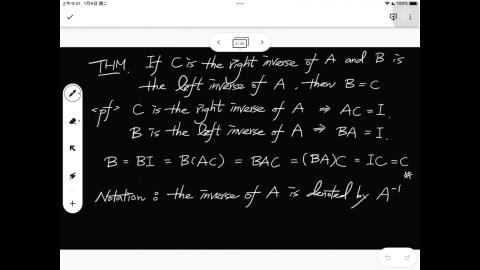 上午9:41 1月9日 週二
100%
2/36
THM. If C is the right inverse of A and B is
the left inverse of A, then B=C
<pf> C is the right inverse of A ⇒ AC=I.
B is the left inverse of A ⇒ BA=I.
B = BI = B(AC) = BAC = (BA)C = IC = C
※
Notation : the inverse of A is denoted by A⁻¹